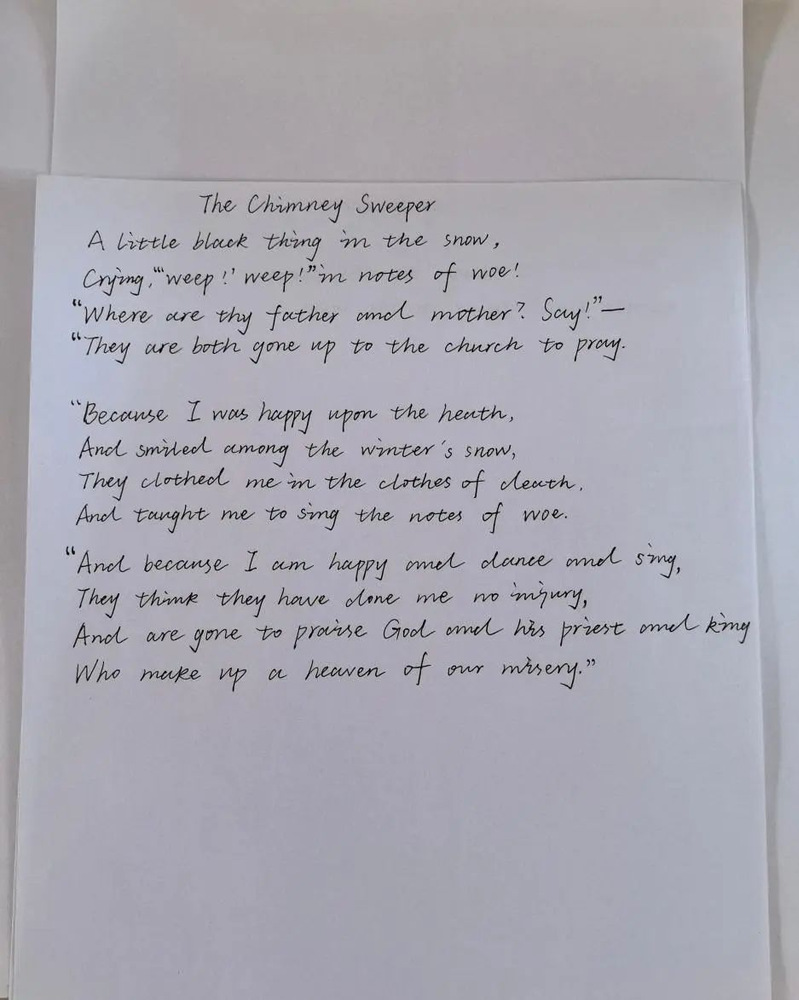 The Chimney Sweeper
A little black thing in the snow,
Crying, "'weep!' weep!" in notes of woe!
"Where are thy father and mother? Say!"—
"They are both gone up to the church to pray.
"Because I was happy upon the heath,
And smiled among the winter's snow,
They clothed me in the clothes of death,
And taught me to sing the notes of woe.
"And because I am happy and dance and sing,
They think they have done me no injury,
And are gone to praise God and his priest and king
Who make up a heaven of our misery."